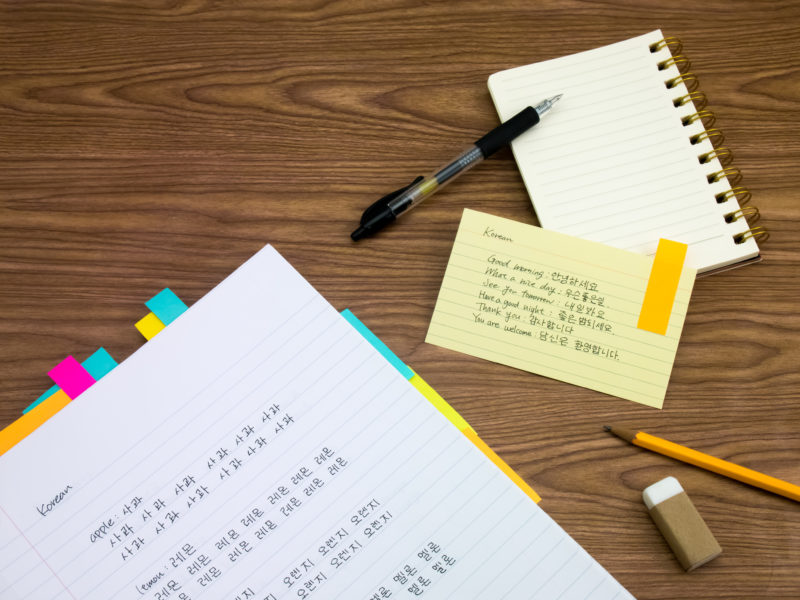 Korean
Good morning : 안녕하세요
What a nice day : 우슨좋은일
See you tomorrow : 내일봐요.
Have a good night : 좋은 밤되세요.
Thank you : 감사합니다
You are welcome : 당신은 환영합니다.
Korean
apple : 사과
사과 사과 사과 사과 사과 사과
사과 사과 사과 사과 사과 사과
lemon : 레몬
레몬 레몬 레몬 레몬 레몬 레몬 레몬
레몬 레몬 레몬 레몬 레몬 레몬
오렌지 오렌지 오렌지 오렌지
오렌지 오렌지 오렌지
멜론 멜론 멜론
멜론 멜론